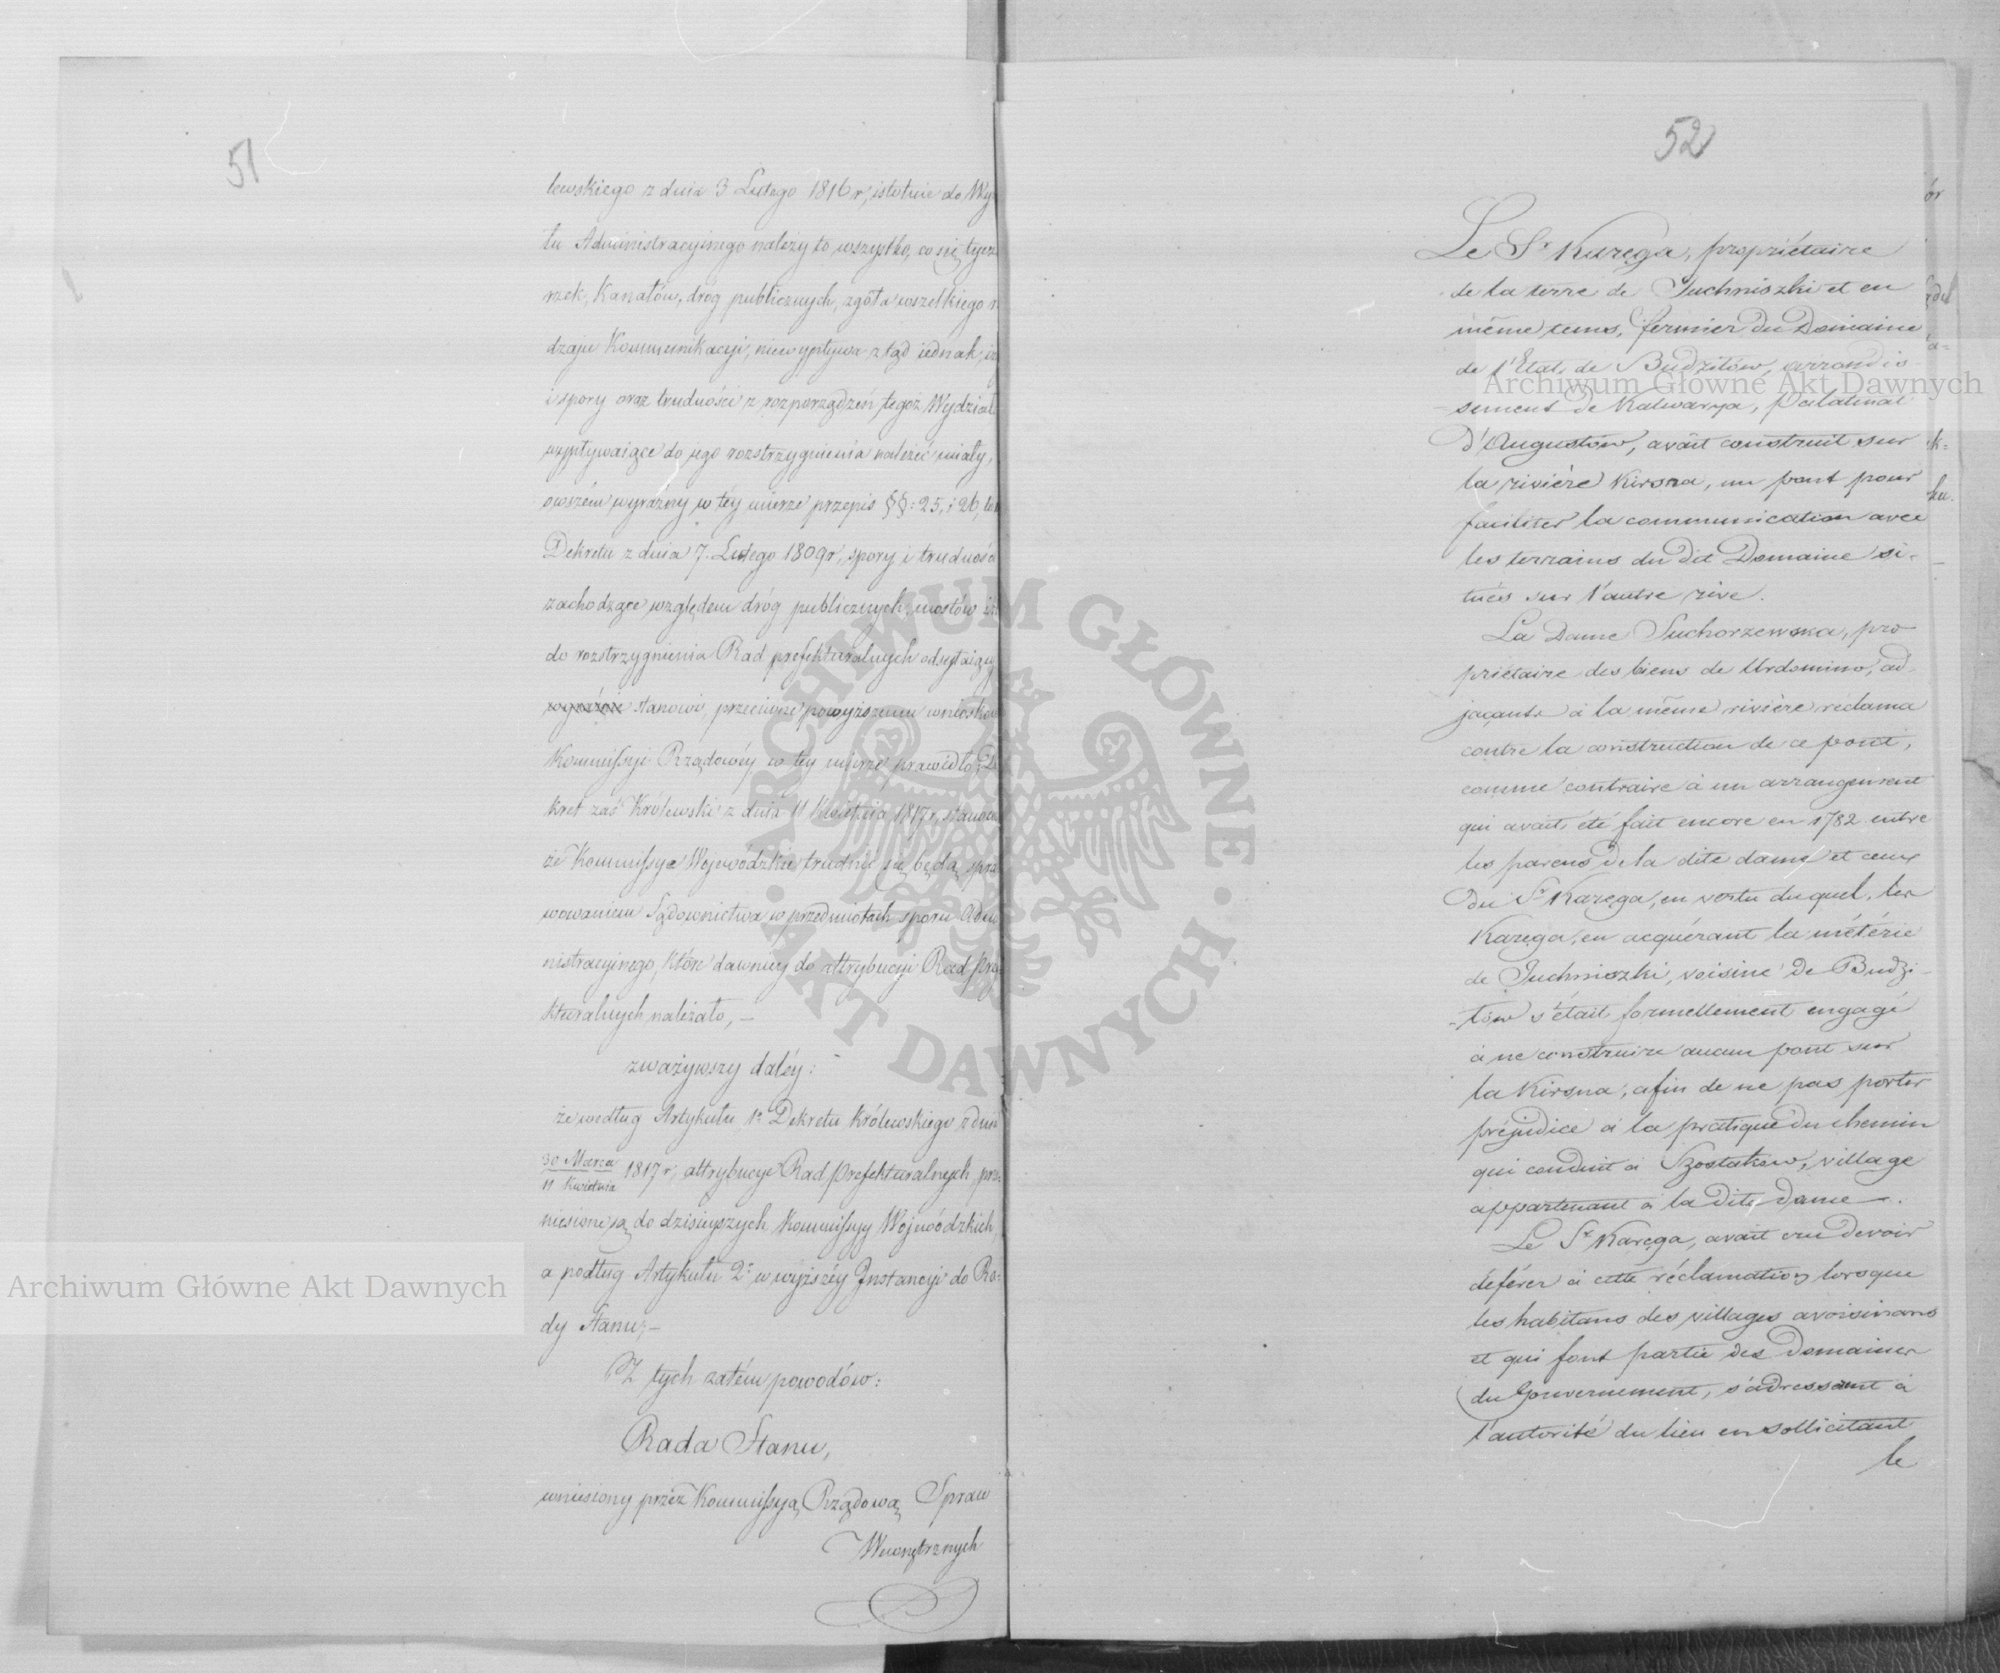 51
lewskiego z dnia 3 Lutego 1816 r, istotnie do Wy
łu Administracyinego należy to wszystko, co się tycze
rzek, Kanałów, dróg publicznych, zgoła wszelkiego r
dzaju Kommunikacyi, niewypływa ztąd iednak, iż
i spory oraz trudności z rozporządzeń tegoż Wydziału
wypływaiące do iego rozstrzygnienia należéć miały,
owszém wyraźny w téy mierze przepis §§: 25, i 26,
Dekretu z dnia 7. Lutego 1809 r, spory i trudnośc
zachodzące względem dróg publicznych, mostów
do rozstrzygnienia Rad prefekturalnych odsyłaiący
wyraźnie stanowi, przeciwne powyższemu wniosko
Kommissyi Rządowéy w téy mierze prawidło; De
kret zaś Królewski z dnia 11 Kwietnia 1817 r, stanowi
że Kommissye Woiewódzkie trudnić się będą spra
wowaniem Sądownictwa w przedmiotach sporu Admi
nistracyinego, które dawniey do attrybucyi Rad Pref
kturalnych należało, —
zważywszy daléy:
że według Artykułu 1º Dekretu Królewskiego z dnia
30 Marca
11 Kwietnia 1817 r, attrybucye Rad Prefekturalnych, prze
niesione są do dzisieyszych Kommissyy Woiewódzkich
a podług Artykułu 2º, w wyższéy Instancyi do Ra:
dy Stanu; —
Z tych zatém powodów:
Rada Stanu,
wniesiony przez Kommissyą Rządową Spraw
Wewnętrznych
52
Le Sr Karęga, propriétaire
de la terre de Juchniszki et en
même tems, fermier du Domaine
de l'Etat, de Budzitów, arrondis
sement de Kalwarya, Palatinat
d'Augustów, avait construit sur
la rivière Kirsna, un pont pour
faciliter la communication avec
les terrains du dit Domaine si-
tués sur l'autre rive.
La Dame Suchorzewska, pro
priétaire des biens de Urdomino, ad
jaçants à la même rivière réclama
contre la construction de ce pont,
comme contraire à un arrangement
qui avait été fait encore en 1782 entre
les parens de la dite dame et ceux
du Sr Karęga, en vertu duquel, les
Karęga, en acquérant la métérie
de Juchniszki, voisine de Budzi-
tów s'était formellement engagé
à ne construire aucun pont sur
la Kirsna, afin de ne pas porter
préjudice à la pratique du chemin
qui conduit à Szostaków, village
appartenant à la dite dame.
Le Sr Karęga, avait cru devoir
déférer à cette réclamation lorsque
les habitans des villages avoisinans
et qui font partie des Domaines
du Gouvernement, s'adressant à
l'autorité du lieu en sollicitant
le
Archiwum Główne Akt Dawnych
Archiwum Główne Akt Dawnych
ARCHIWUM GŁÓWNE · AKT DAWNYCH ·